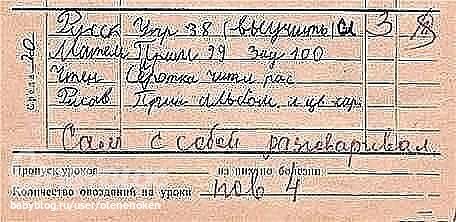 Среда 20
Русск Упр 38 (выучить) 3
Матем Прим 99 Зад 100
Чтен Сиротка читл рас
Рисов Прин альбом, и цв кар.
Сам с собой разговаривал
Пропуск уроков из них по болезни
Количество опозданий на уроки пов 4
babyblog.ru/user/